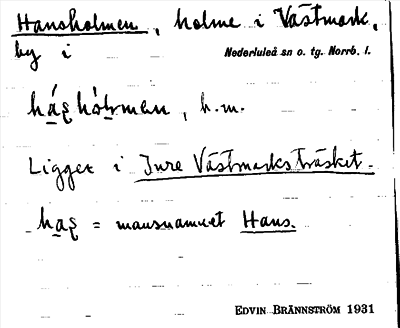 Hansholmen, holme i Västmark,
by i Nederluleå sn o. tg. Norrb. l.
hás̱hólmen, b.m.
Ligger i Inre Västmarksträsket.
has̱ = mansnamnet Hans.
EDVIN BRÄNNSTRÖM 1931